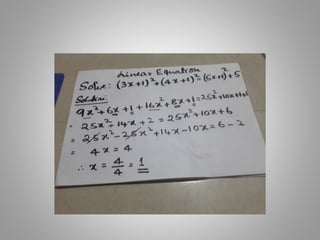 Linear Equation
Solve: (3x+1)²+(4x+1)²=(5x+1)²+5
Solution:
9x²+6x+1+16x²+8x+1=25x²+10x+1+5
25x²+14x+2=25x²+10x+6
= 25x²-25x²+14x-10x=6-2
= 4x=4
∴ x = 4/4 = 1